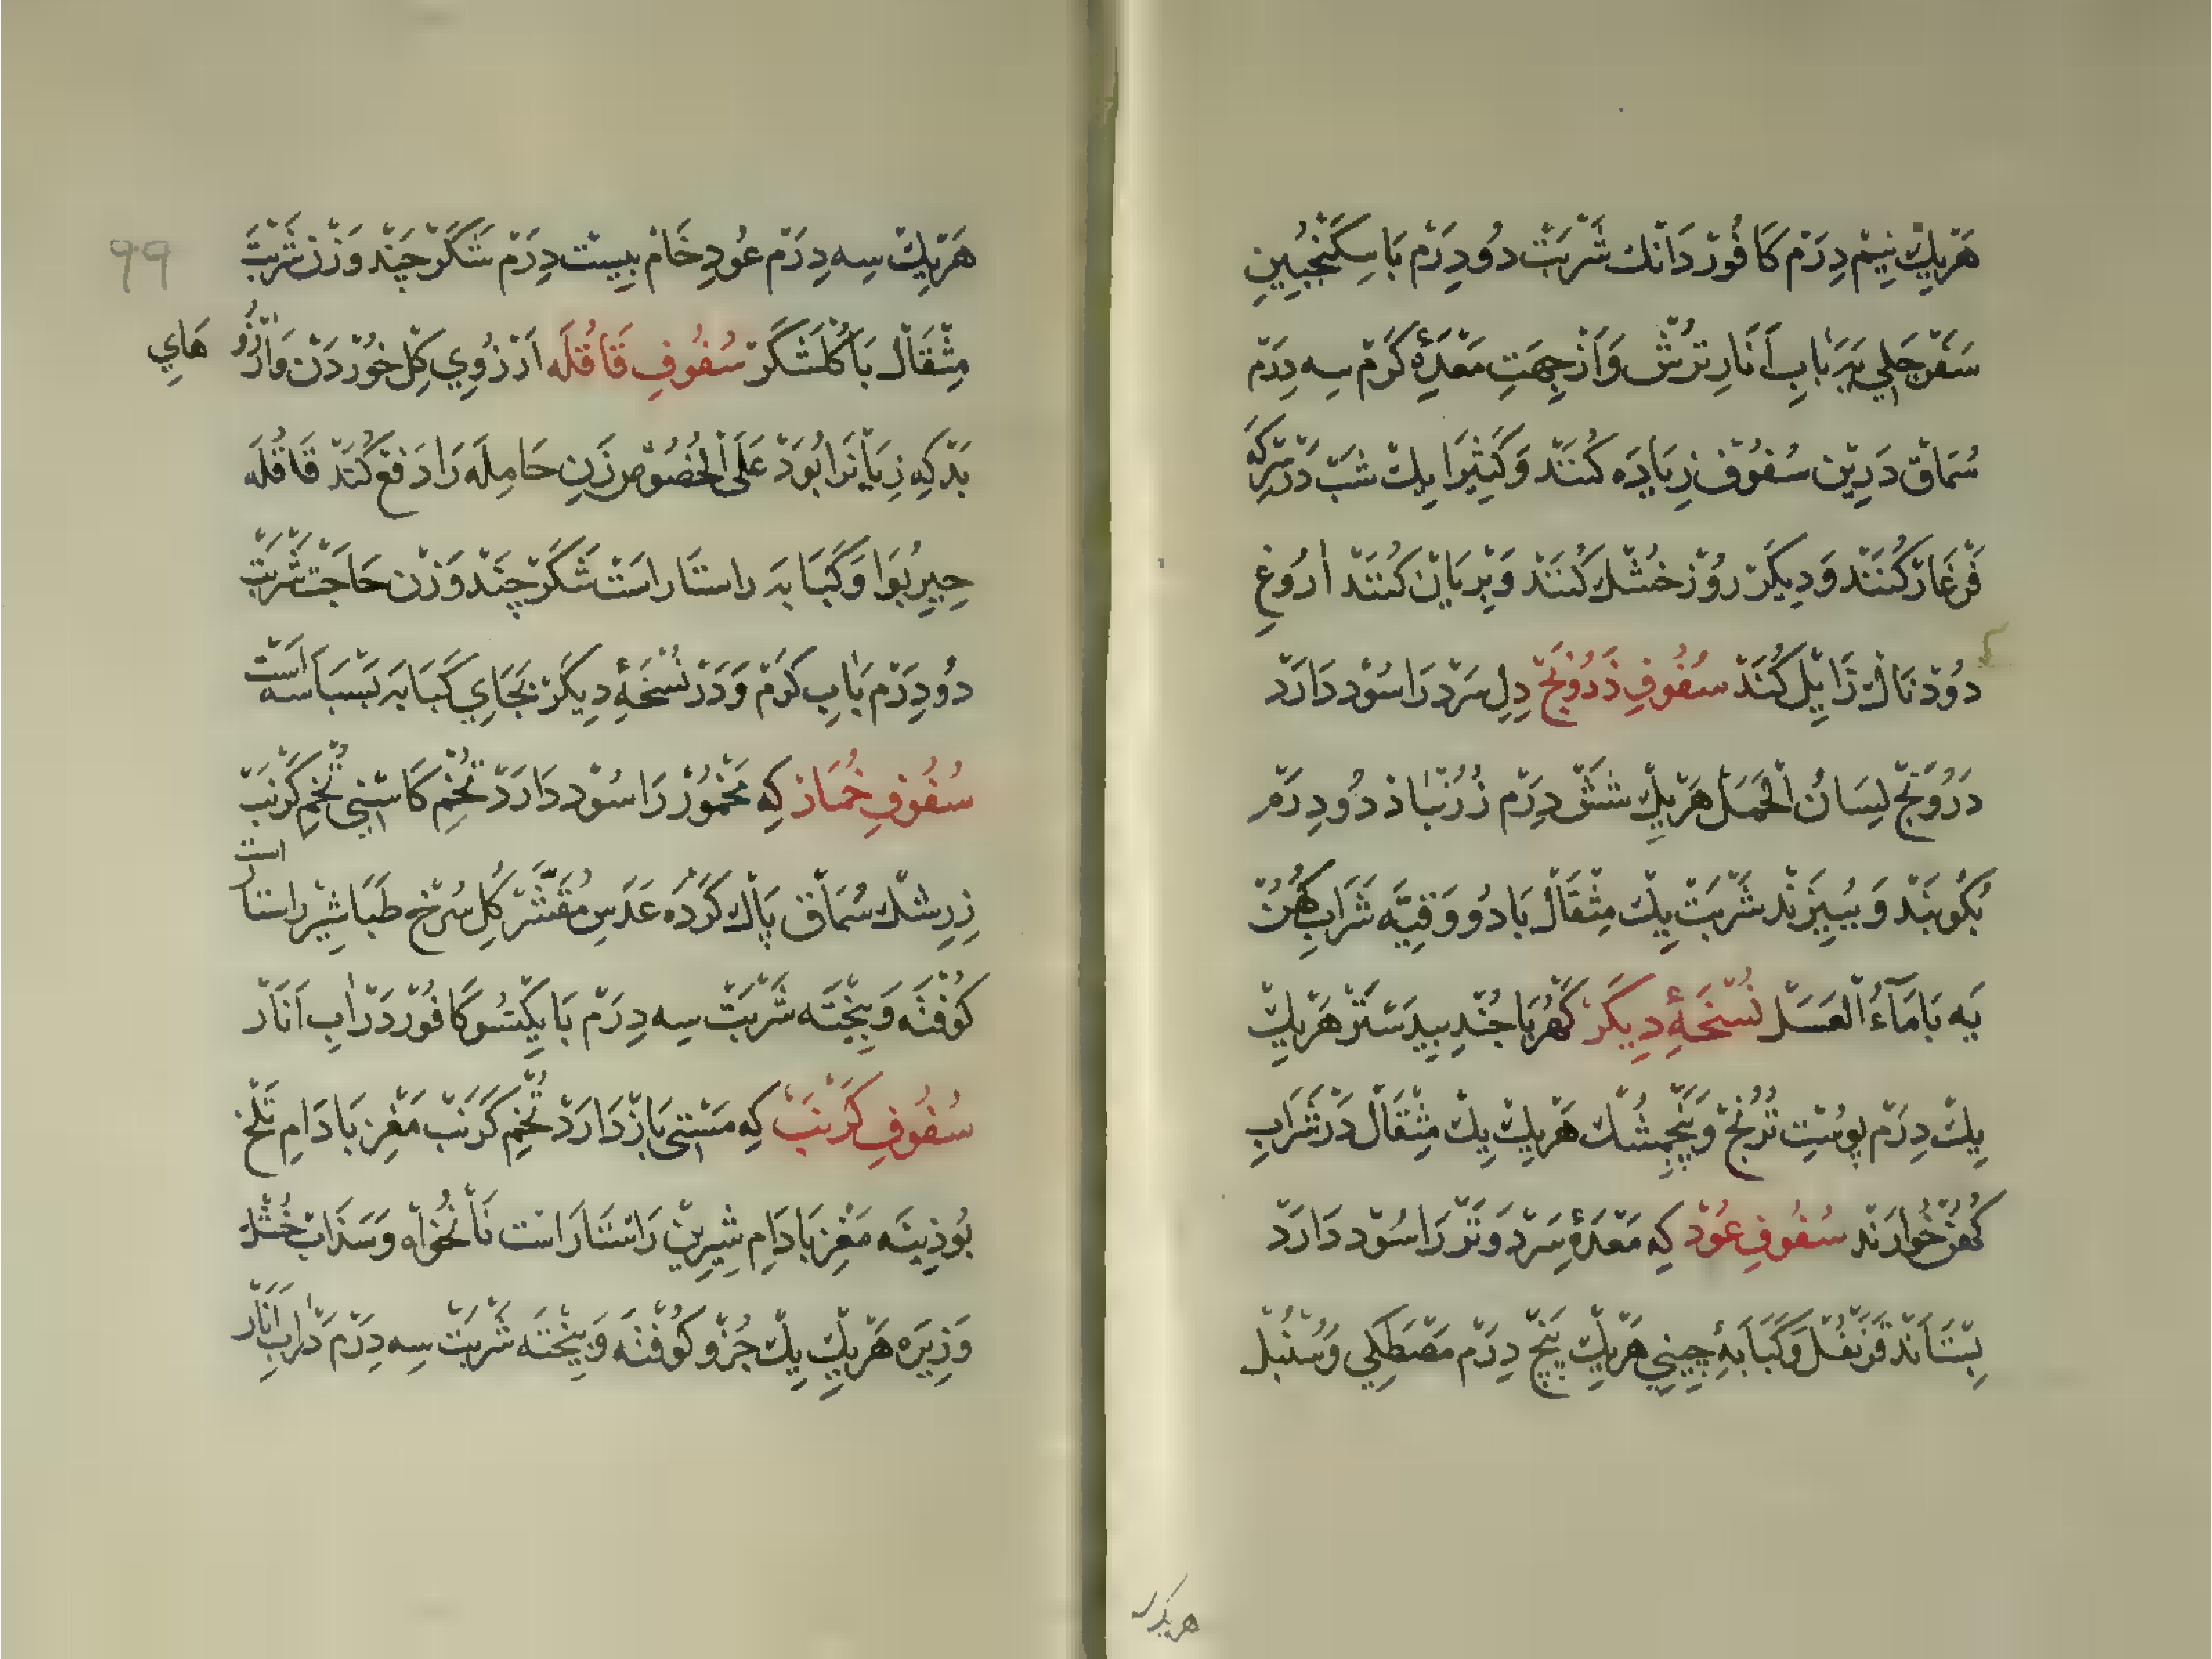 هَرْيِكْ نِيمْ دِرَمْ كَافُورْ دَانْك شَرْبَتْ دُو دِرَمْ بَا سِكَنْجُبِينِ
سَفَرْجَلِي يَا بَابِ اَنَارِ تُرُشْ وَاَزْ جِهَتِ مَعْدَۀِ كَرْم سِه دِرَم
سُمَاقْ دَرِيْن سُفُوفْ زِيَادَه كُنَنْد وَكَثِيرَا يِكْ شَبْ دَرْ سِرْكَه
فَرْغَارْ كُنَنْد وَدِيكَرْ رُوْز خُشْك كُنَنْد وَبِرْيَانْ كُنَنْد اَرُوغِ
دُوْدْنَاكْ زَايِلْ كُنَدْ سُفُوفِ دَرُونَجْ دِلِ سَرْد رَا سُوْد دَارَدْ
دَرُوْنَجْ لِسَانُ اْلحَمَلْ هَرْيِكْ شَشْ دِرَم زُرُنْبَاذ دُو دِرَمْ
بُكُوبَنْد وَبِبِيزَنْد شَرْبَتْ يِكْ مِثْقَالْ بَا دُو وَقِيَّه شَرَابِ كُهُنْ
يَه بَا مَآءُ اْلعَسَلْ نُسْخَۀِ دِيكَرْ كَهْرُبَا جُنْدِ بِيدَسْتَرْ هَرْيِكْ
يِكْ دِرَمْ پُوسْتِ تُرُنْجْ وَپَنْجِمُشْك هَرْيِكْ يِكْ مِثْقَالْ دَرْ شَرَابِ
كُهُنْ خُوارَنْد سُفُوفِ عُوْدْ كِه مَعْدَۀِ سَرْد وَتَرْ رَا سُوْد دَارَدْ
بِسْتَانَنْد قَرَنْفُلْ وَكَبَابَۀِ چِينِي هَرْيِكْ پَنْجْ دِرَمْ مَصْطَكِي وَسُنْبُلْ
هريك
99
هَرْيِكْ سِه دِرَمْ عُودِ خَامْ بِيسْت دِرَمْ شَكَرْ چَنْد وَزْنْ شَرْبَتْ
مِثْقَالْ بَا كُلْشَكَرْ سُفُوفِ قَاقُلَه اَرْزُوِي كِلْ خُوْرْدَنْ وَاَرْزُو هَايِ
بَدْ كِه زِيَانْرَا بُوَدْ عَلَى اْلخُصُوْص زَنِ حَامِلَه رَا دَفْعْ كُنَدْ قَاقُلَه
جِيرِبُوَا وَكَبَابَه رَاسْتَارَاسْت شَكَرْ چَنْد وَزْن حَاجَتْ شَرْبَتْ
دُو دِرَمْ بَابِ كَرْم وَدَرْ نُسْخَۀِ دِيكَرْ بَجَايِ كَبَابَه بَسْبَاسَه اَسْت
سُفُوفِ خُمَارْ كِه مَخْمُوْرْ رَا سُوْد دَارَدْ تُخْمِ كَاسْنِي تُخْمِ كَرَنْبْ
زِرِشْك سُمَاقْ پَاكْ كَرْدَه عَدَسِ مُقَشَّرْ كُلِ سُرْخ طَبَاشِيْر رَاسْتَارَاسْت
كُوفْتَه وَبِيخْتَه شَرْبَتْ سِه دِرَمْ بَا يِكْتَسُو كَافُوْر دَرْ اَبِ اَنَارْ
سُفُوفِ كَرَنْبْ كِه مَسْتِي بَازْ دَارَدْ تُخْمِ كَرَنْبْ مَغْزِ بَادَامِ تَلْخْ
بُوذِينَه مَغْزِ بَادَامِ شِيرِيْن رَاسْتَارَاسْت نَانُخْوَاه وَسَذَابْ خُشْك
وَزِيرَه هَرْيِكْ يِكْ جُزْو كُوْفْتَه وَبِيخْتَه شَرْبَتْ سِه دِرَمْ دَرْ اَبِ اَنَارْ